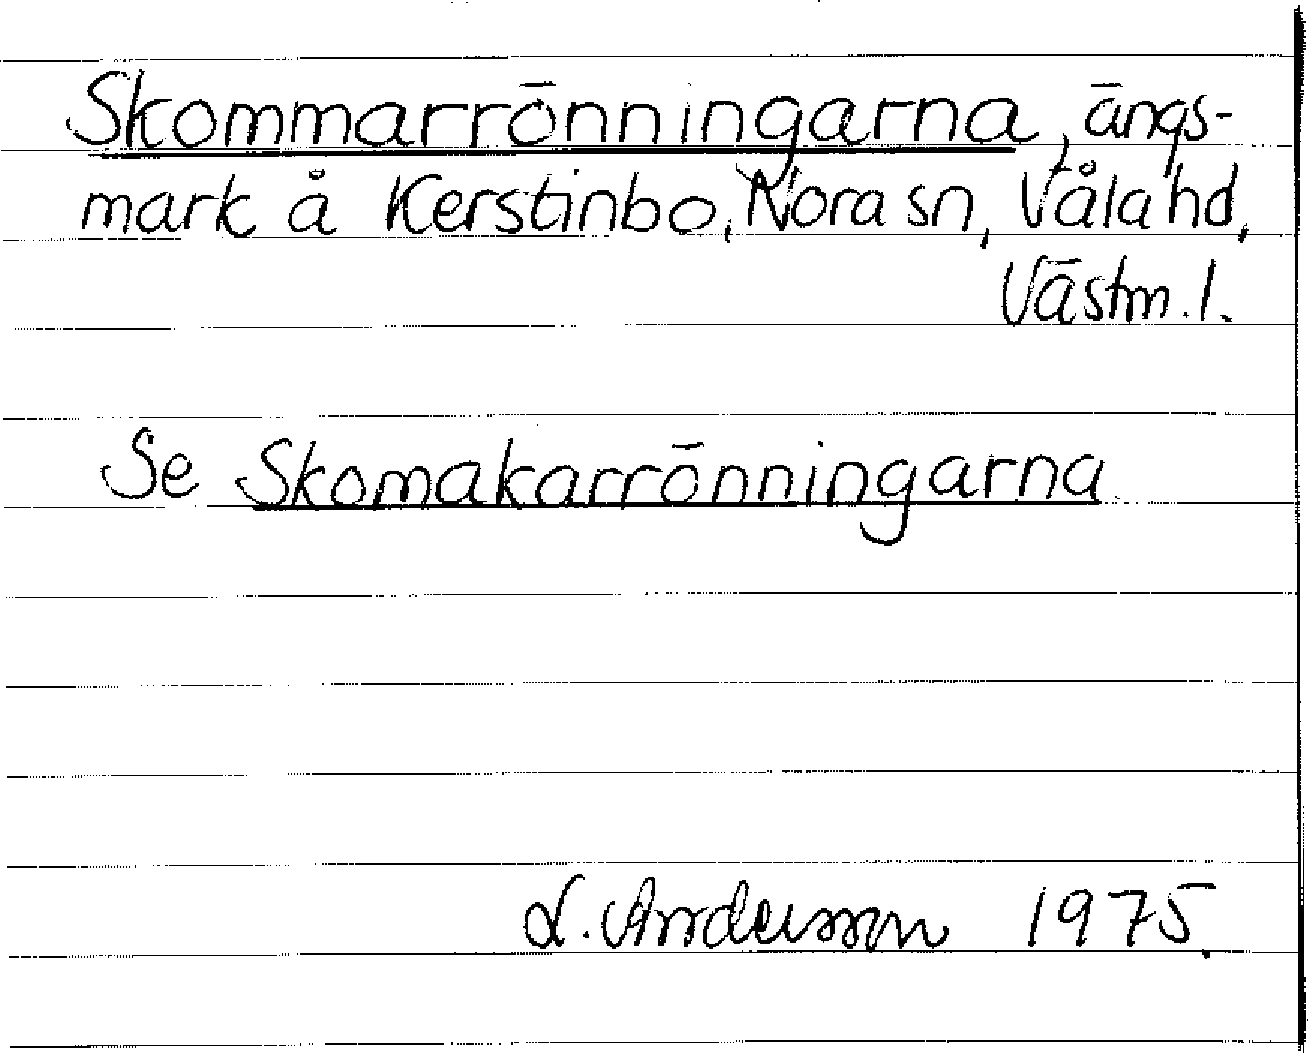 Skommarrönningarna, ängs-
mark å Kerstinbo, Nora sn, Våla hd,
Västm. l.
Se Skomakarrönningarna
L. Andersson 1975.